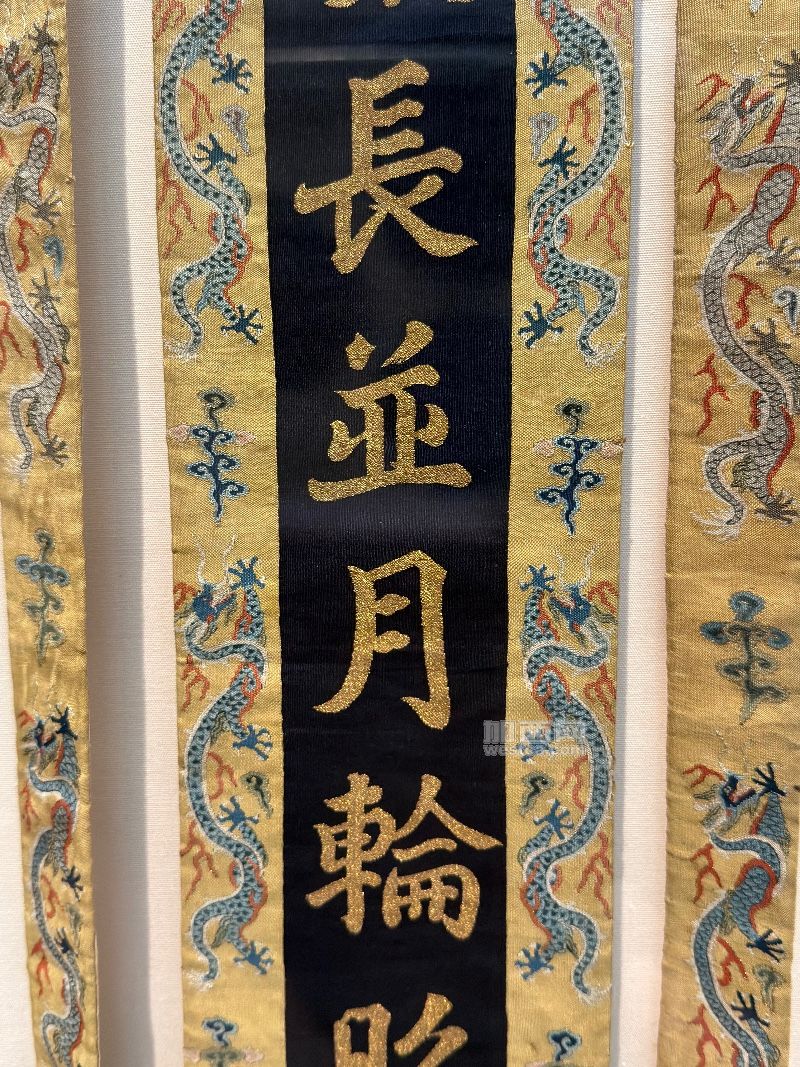 長並月輪